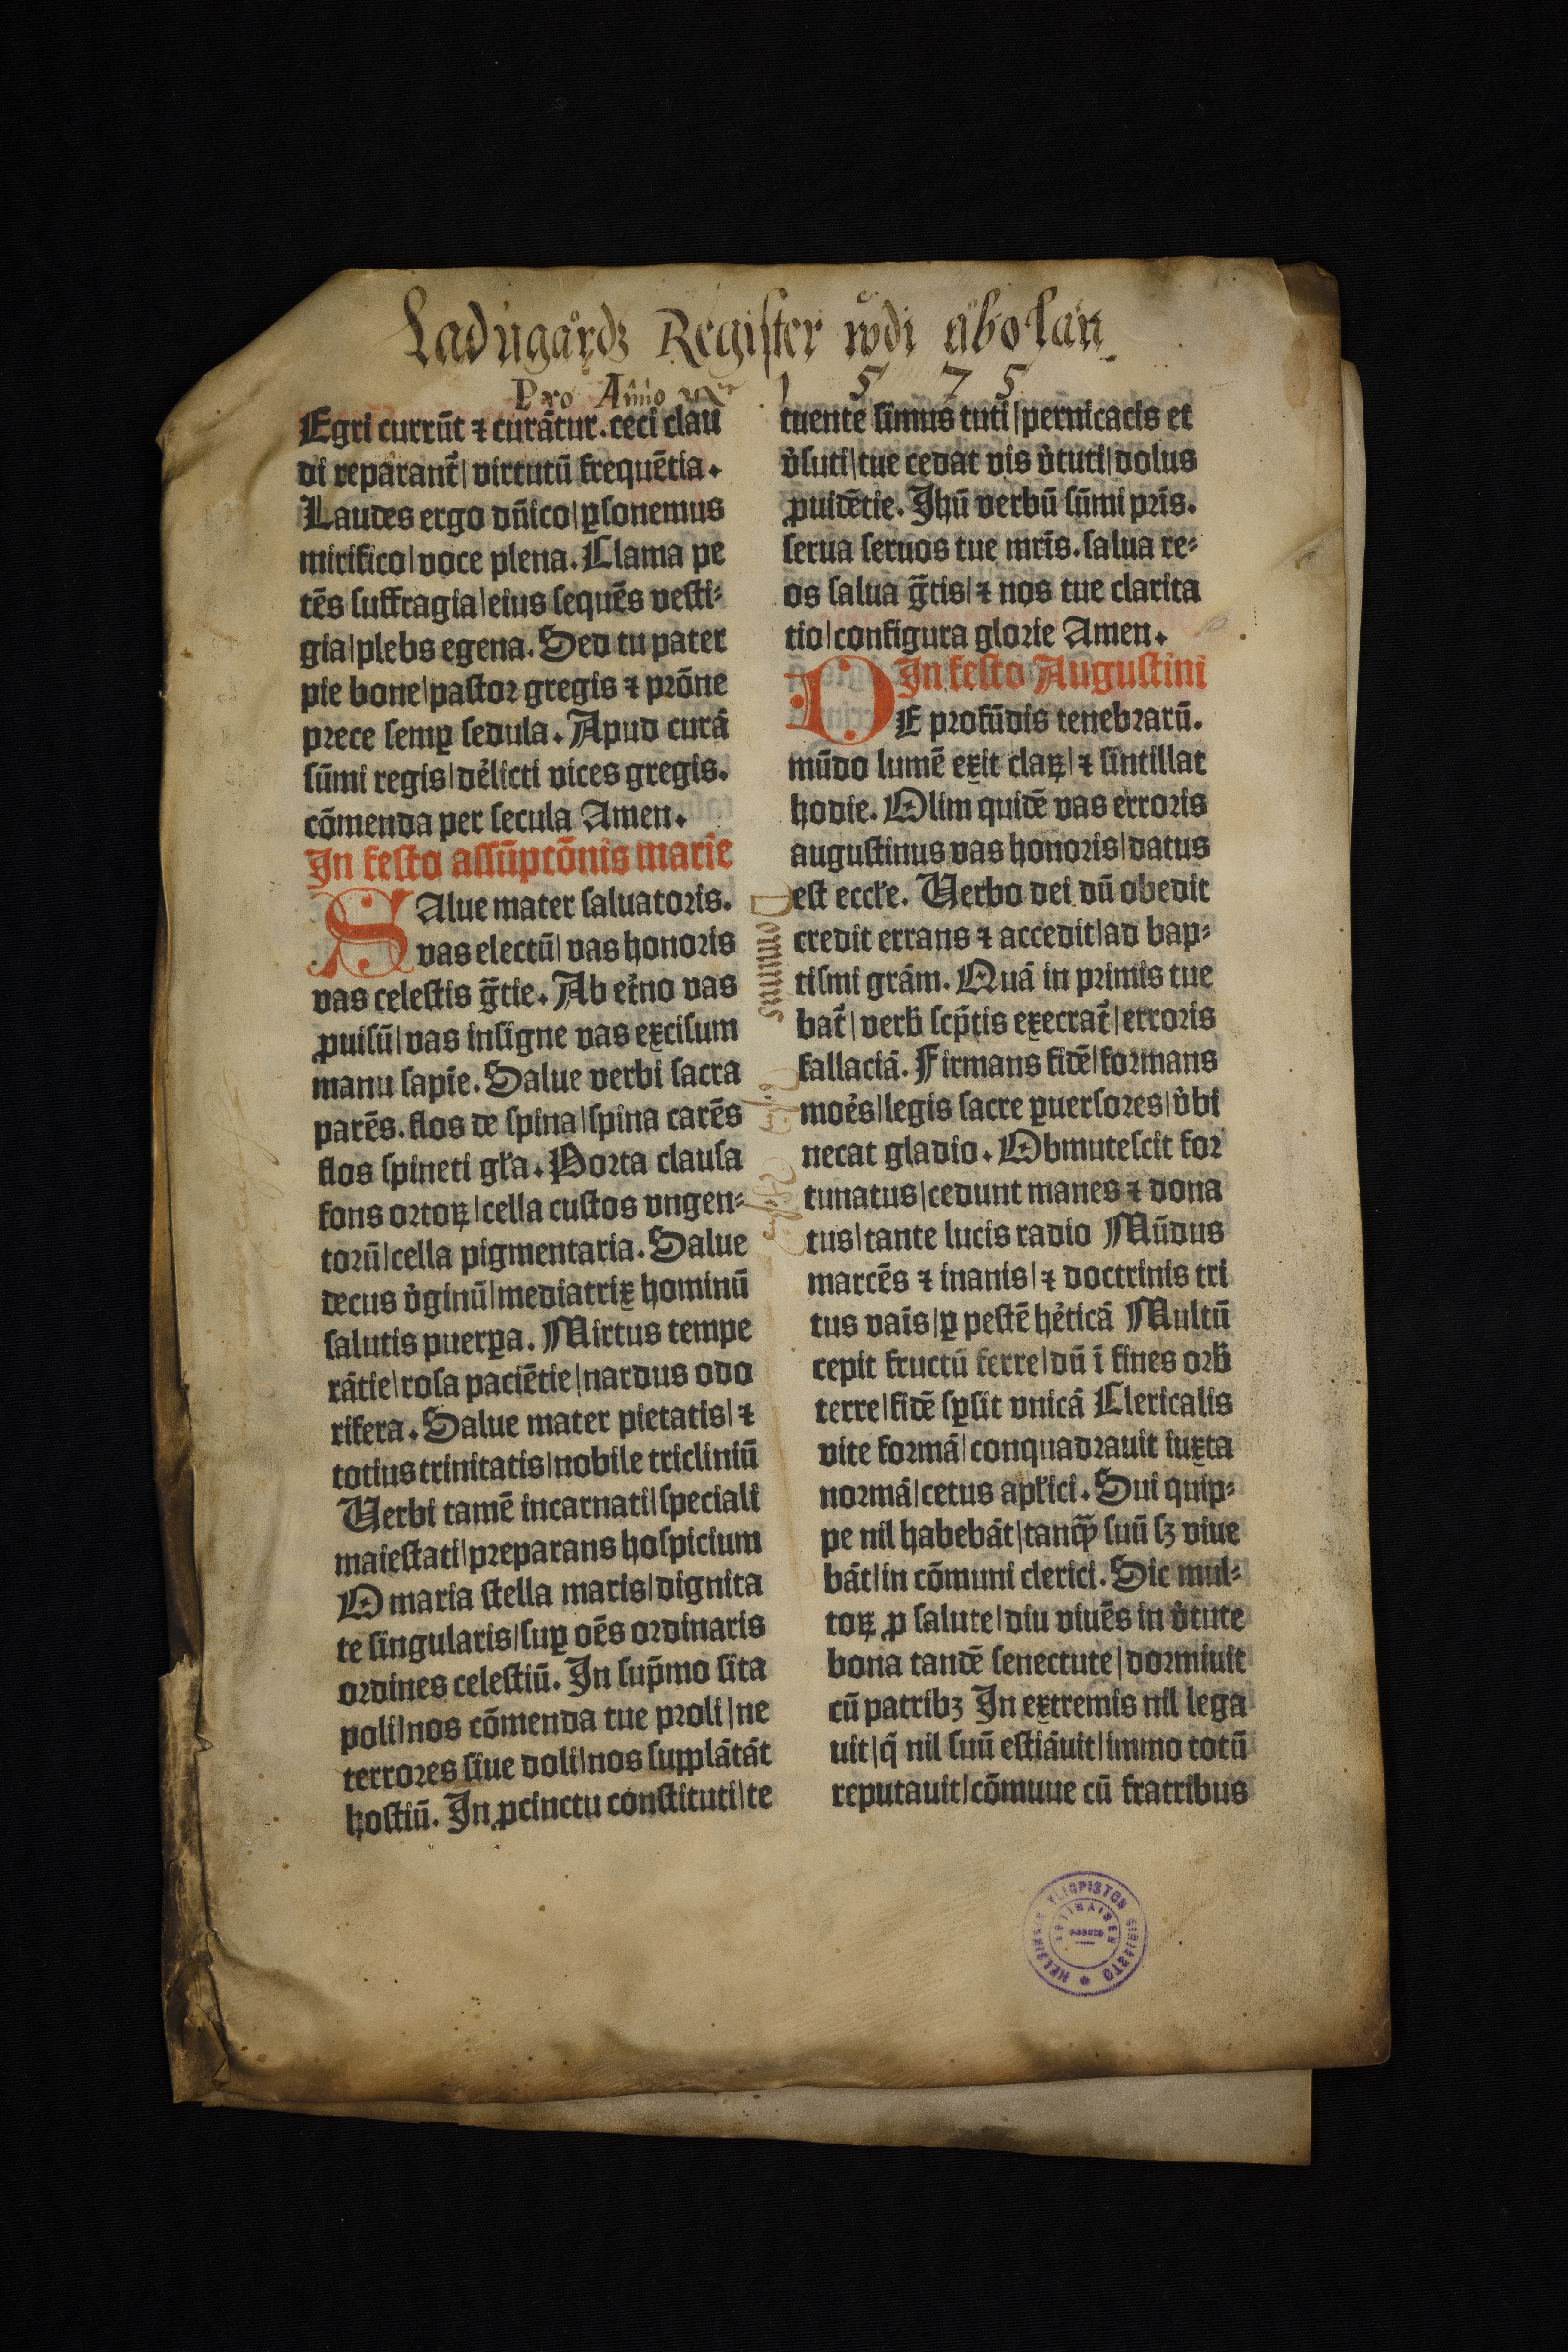 Ladugårdz Register wdi åbo län
Pro Anno
1 5 7 5
Egri currūt ⁊ curātur. ceci clau
di reparant᷑ | virtutū frequētia.
Laudes ergo dn̄ico | ꝑsonemus
mirifico | voce plena. Clama pe
tēs suffragia | eius sequēs vesti⸗
gia | plebs egena. Sed tu pater
pie bone | pastor gregis ⁊ prōne
prece semꝑ sedula. Apud curā
sūmi regis | delicti vices gregis.
cōmenda per secula Amen.
In festo assūptōnis marie
SAlue mater saluatoris.
vas electū | vas honoris
vas celestis gr̄tie. Ab et᷑no vas
ꝓuisū | vas insigne vas excisum
manu sapīe. Salue verbi sacra
parēs. flos de spina | spina carēs
flos spineti gl̄a. Porta clausa
fons ortoꝝ | cella custos vngen⸗
torū | cella pigmentaria. Salue
decus v᷑ginū | mediatrix hominū
salutis puerꝑa. Mirtus tempe
rātie | rosa paciētie | nardus odo
rifera. Salue mater pietatis | ⁊
totius trinitatis | nobile tricliniū
Verbi tamē incarnati | speciali
maiestati | preparans hospicium
O maria stella maris | dignita
te singularis | suꝑ oēs ordinaris
ordines celestiū. In sup̄mo sita
poli | nos cōmenda tue proli | ne
terrores siue doli | nos supplātāt
hostiū. In ꝓcinctu constituti | te
tuente simus tuti | pernicacis et
v᷑suti | tue cedat vis v᷑tuti | dolus
ꝓuidētie. Jhū verbū sūmi pr̄is.
serua seruos tue mr̄is. salua re⸗
os salua gr̄tis | ⁊ nos tue clarita
tio | configura glorie Amen.
In festo Augustini
DE profūdis tenebrarū.
mūdo lumē exit claꝝ | ⁊ sintillat
hodie. Olim quidē vas erroris
augustinus vas honoris | datus
est eccl̄e. Verbo dei dū obedit
credit errans ⁊ accedit | ad bap⸗
tismi grām. Quā in primis tue
bat᷑ | verb̄ scp̄tis execrat᷑ | erroris
fallaciā. Firmans fidē | formans
moēs | legis sacre ꝑuersores | v᷑bi
necat gladio. Obmutescit for
tunatus | cedunt manes ⁊ dona
tus | tante lucis radio Mūdus
marcēs ⁊ inanis | ⁊ doctrinis tri
tus vaīs | ꝑ pestē he᷑ticā Multū
cepit fructū ferre | dū ī fines orb̄
terre | fidē sꝑsit vnicā Clericalis
vite formā | conquadrauit iuxta
normā | cetus apl̄ici. Sui quip⸗
pe nil habebāt | tanqꝫ suū sꝫ viue
bāt | in cōmuni clerici. Sic mul⸗
toꝝ ꝓ salute | diu viuēs in v᷑tute
bona tandē senectute | dormiuit
cū patribꝫ In extremis nil lega
uit | q̄ nil suū estiāuit | immo totū
reputauit | cōmuue cū fratribus
Dominus
HELSINGIN YLIOPISTON KIRJASTO